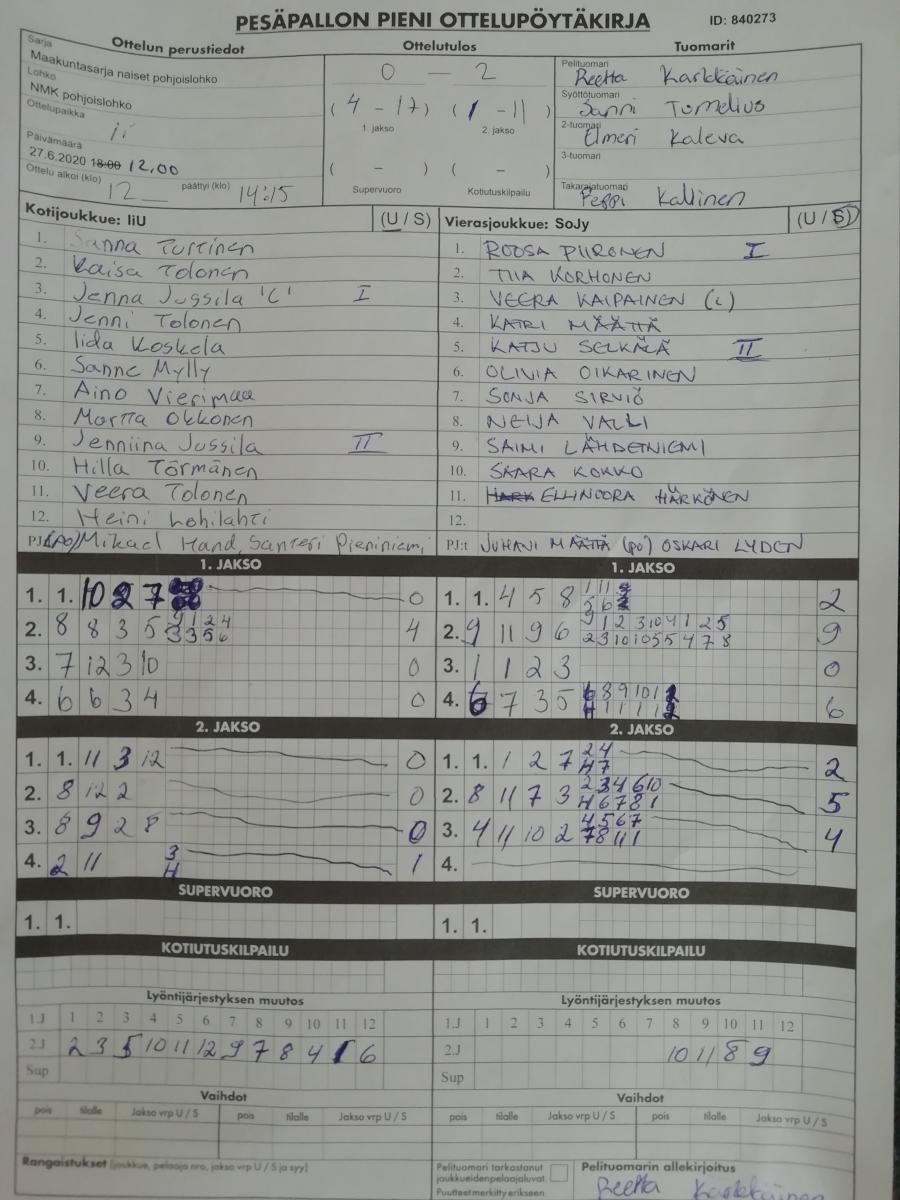 PESÄPALLON PIENI OTTELUPÖYTÄKIRJA ID: 840273
Ottelun perustiedot Ottelutulos Tuomarit
Sarja
Maakuntasarja naiset pohjoislohko
Lohko
NMK pohjoislohko
Ottelupaikka
ii
Päivämäärä
27.6.2020 18:00 12,00
Ottelu alkoi (klo) 12 päättyi (klo) 14:15
0 — 2
(4 - 17) (1 - 11)
1. jakso 2. jakso
( - ) ( - )
Supervuoro Kotiutuskilpailu
Pelituomari
Reetta Karkkäinen
Syöttötuomari
Sanni Tornelius
2-tuomari
Elmeri Kaleva
3-tuomari
Takarajatuomari
Peppi Kallinen
Kotijoukkue: IiU (U / S)
1. Sanna Turtinen
2. Kaisa Tolonen
3. Jenna Jussila 'C' I
4. Jenni Tolonen
5. Iida Koskela
6. Sanne Mylly
7. Aino Vierimaa
8. Martta Okkonen
9. Jenniina Jussila II
10. Hilla Törmänen
11. Veera Tolonen
12. Heini Lohilahti
PJ: (PO) Mikael Hand, Santeri Pieniniemi,
Vierasjoukkue: SoJy (U / S)
1. ROOSA PIIRONEN I
2. TIIA KORHONEN
3. VEERA KAIPAINEN (c)
4. KATRI MÄÄTTÄ
5. KATJU SELKÄLÄ II
6. OLIVIA OIKARINEN
7. SONJA SIRVIÖ
8. NEIJA VALLI
9. SAIMI LÄHDETNIEMI
10. SAARA KOKKO
11. HARK ELLINOORA HÄRKÖNEN
12.
PJ:t JUHANI MÄÄTTÄ (po) OSKARI LYDEN
1. JAKSO
1. 1. 10 2 7 0
2. 8 8 3 5 9 1 2 4 4
3 3 5 6
3. 7 12 3 10 0
4. 6 6 3 4 0
1. JAKSO
1. 1. 4 5 8 1 1 2
5 6
2. 9 11 9 6 9 1 2 3 10 4 1 2 5 9
2 3 10 10 5 5 4 7 8
3. 1 1 2 3 0
4. 6 7 3 5 6 8 9 10 1 2 6
4 1 1 1 1 2
2. JAKSO
1. 1. 11 3 12 0
2. 8 12 2 0
3. 8 9 2 8 0
4. 2 11 3 1
4
2. JAKSO
1. 1. 1 2 7 2 4 2
4 7
2. 8 11 7 3 2 3 4 6 10 5
4 6 7 8 1
3. 4 11 10 2 4 5 6 7 4
7 8 11 1
4.
SUPERVUORO SUPERVUORO
1. 1. 1. 1.
KOTIUTUSKILPAILU KOTIUTUSKILPAILU
Lyöntijärjestyksen muutos Lyöntijärjestyksen muutos
1.J 1 2 3 4 5 6 7 8 9 10 11 12 1.J 1 2 3 4 5 6 7 8 9 10 11 12
2.J 2 3 5 10 11 12 9 7 8 4 1 6 2.J 10 11 8 9
Sup Sup
Vaihdot Vaihdot
pois tilalle Jakso vrp U / S pois tilalle Jakso vrp U / S pois tilalle Jakso vrp U / S pois tilalle Jakso vrp U / S
Rangaistukset (joukkue, pelaaja nro, jakso vrp U / S ja syy)
Pelituomari tarkastanut
joukkueidenpelaajaluvat.
Puutteet merkitty erikseen.
Pelituomarin allekirjoitus
Reetta Karkkäinen